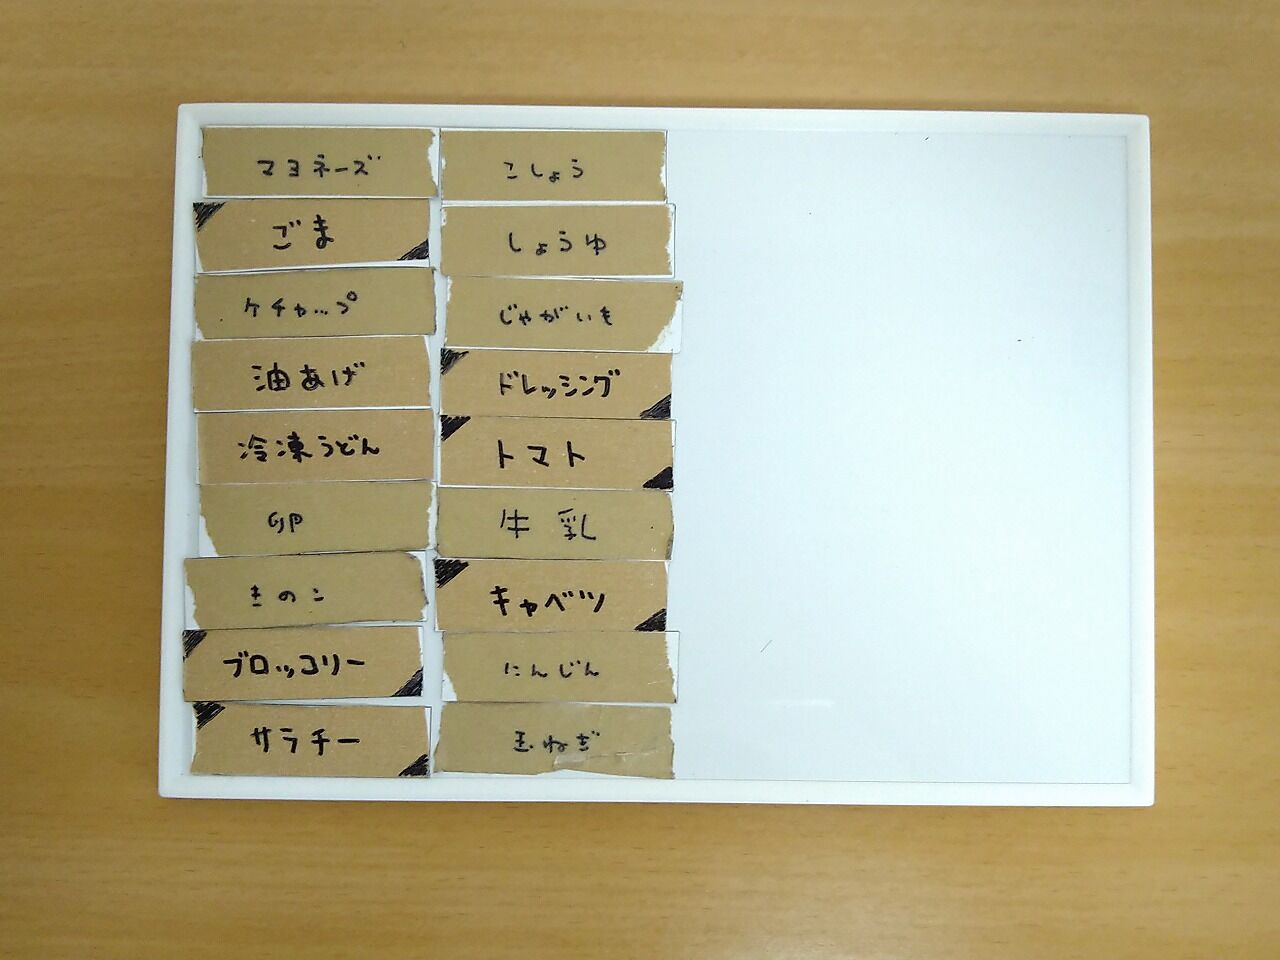 マヨネーズ
ごま
ケチャップ
油あげ
冷凍うどん
卵
きのこ
ブロッコリー
サラチー
こしょう
しょうゆ
じゃがいも
ドレッシング
トマト
牛乳
キャベツ
にんじん
玉ねぎ